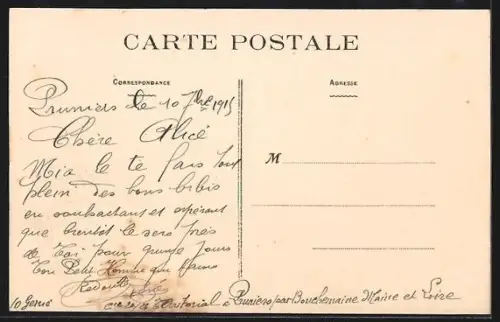 CARTE POSTALE
CORRESPONDANCE
ADRESSE
Pruniers le 10 7bre 1915
Chère Alice
Mia le te fais tout
plein des bons bibis
en souhaitant et espérant
que bientôt le sera près
de toi pour quinze jours
Ton Petit Homme que t'aime
M
10 Genie
à Pruniers par Bouchemaine Maine et Loire